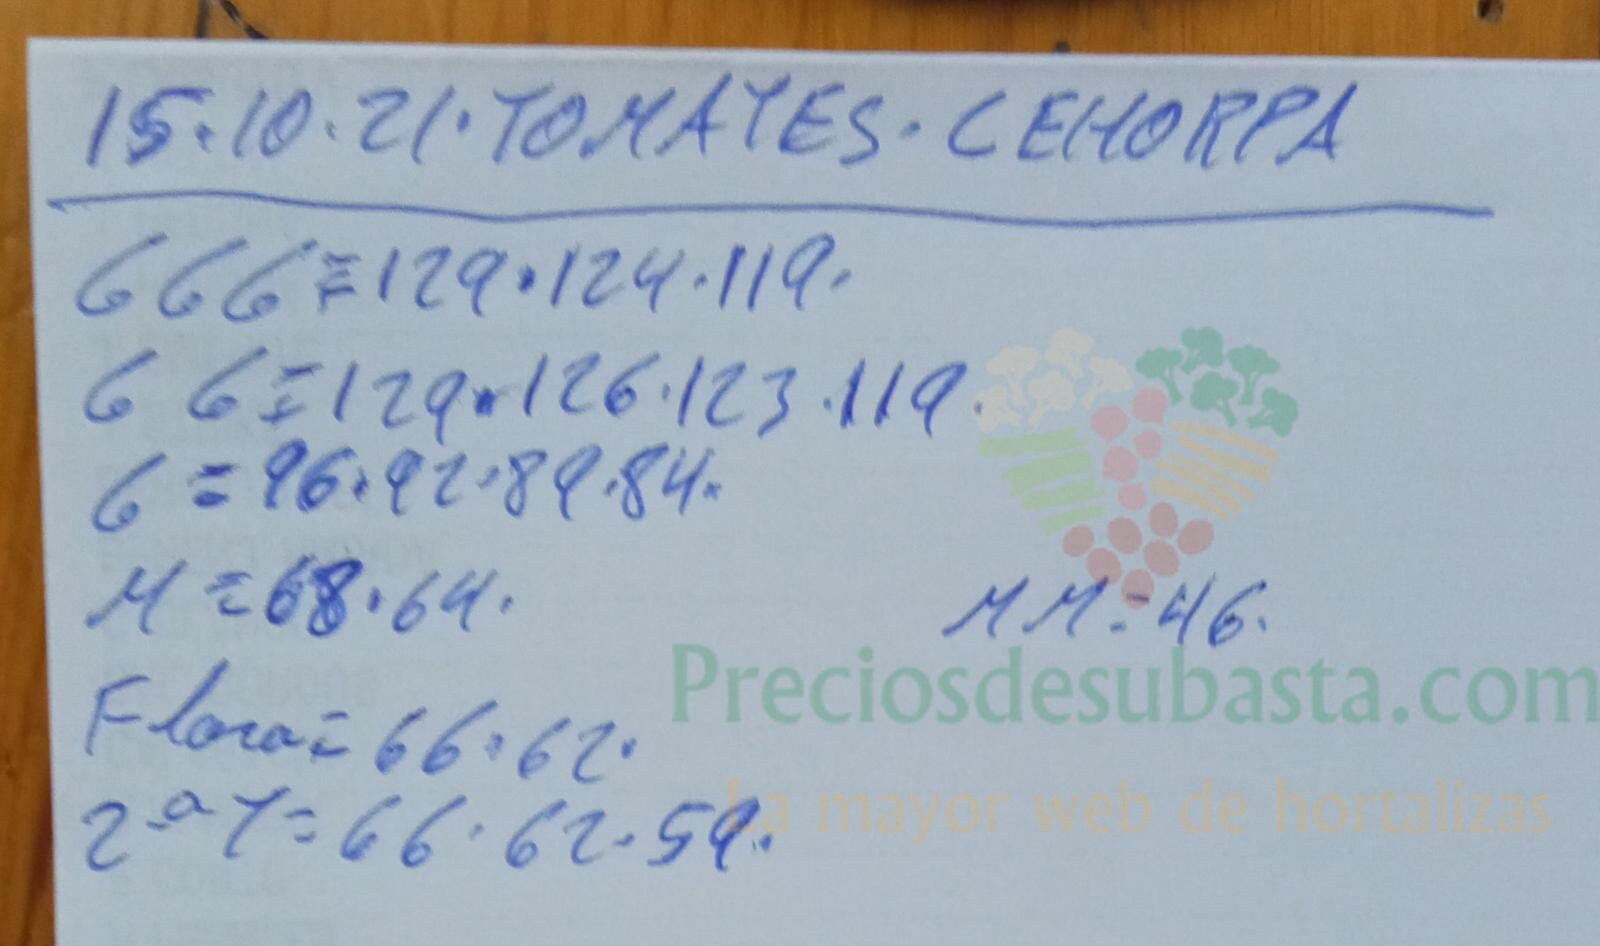 15.10.21. TOMATES. CEHORPA
GGG = 129.124.119.
GG = 129.126.123.119.
G = 96.92.89.84.
M = 68.64.
MM = 46.
Preciosdesubasta.com
Flora = 66.62.
La mayor web de hortalizas
2ª T = 66.62.59.